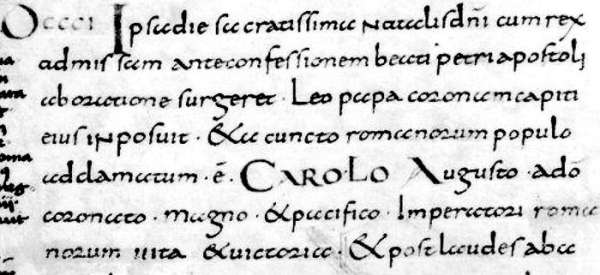 DCCCI Ipsa die sacratissima natalis dñi cum rex
ad missam ante confessionem beati petri apostoli
ab oratione surgeret · Leo papa coronam capiti
eius inposuit · & a cuncto romanorum populo
adclamatum · ē · CAROLO Augusto · adō
coronato · magno · & pacifico · Imperatori roma
norum uita & uictoria · & post laudes ab a